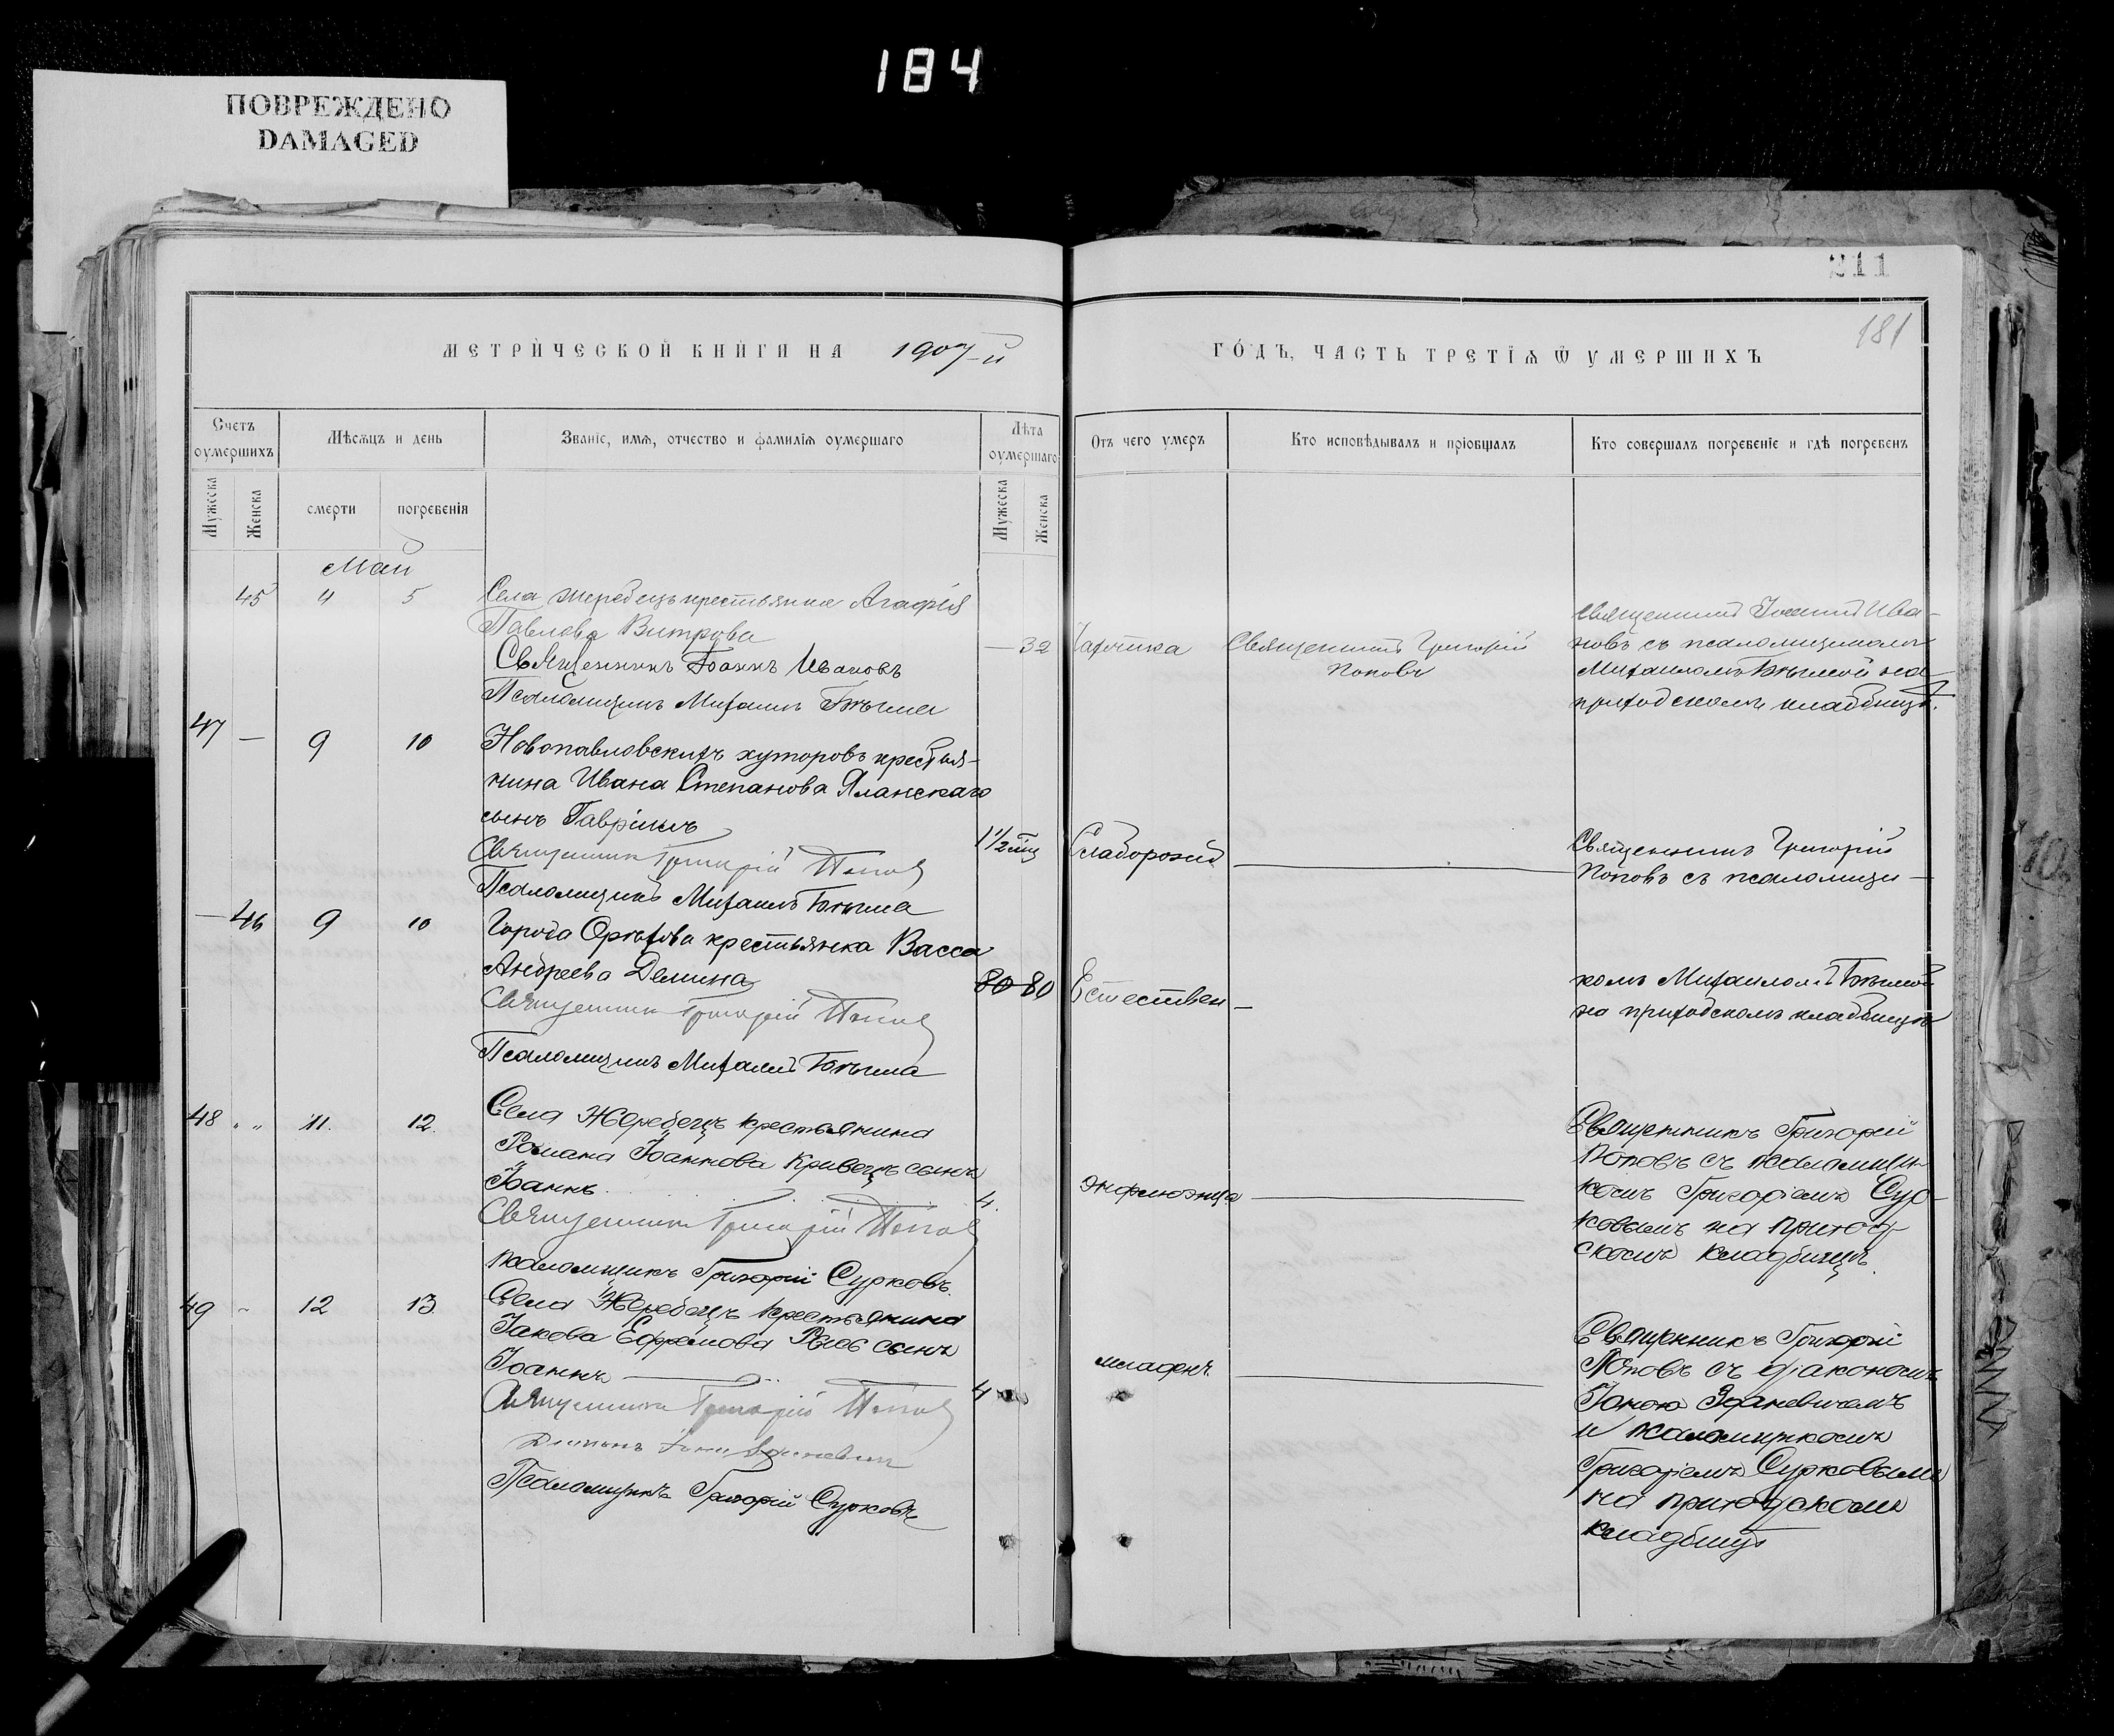 184
ПОВРЕЖДЕНО
DAMAGED
211
181
МЕТРИЧЕСКОЙ КНИГИ НА 1907-й
ГОДЪ, ЧАСТЬ ТРЕТІѦ Ѿ УМЕРШИХЪ
Счетъ оумершихъ
Мѣсѧцъ и день
Званіе, имѧ, отчество и фамиліѧ оумершаго
Лѣта оумершаго
Отъ чего умеръ
Кто исповѣдывалъ и пріобщалъ
Кто совершалъ погребеніе и гдѣ погребенъ
Мужеска
Женска
смерти
погребенія
Мужеска
Женска
Май
45 4 5
Села Жеребецъ крестьянка Агафія
Павлова
Священникъ Іоаннъ Ивановъ
Псаломщикъ Михаилъ
— 32
Чахотка
Священникъ Григорій
Поповъ
Священникъ Іоаннъ Ива-
новъ съ псаломщикомъ
Михаиломъ на
приходскомъ кладбищѣ.
47 — 9 10
Новопавловскихъ хуторовъ крестья-
нина Ивана Степанова Яланскаго
сынъ Гавріилъ
Священникъ Григорій Поповъ
Псаломщикъ Михаилъ
1½ мц
Священникъ Григорій
Поповъ съ псаломщи-
— 46 9 10
Города Орѣхова крестьянка Васса
Андреева Демина
Священникъ Григорій Поповъ
Псаломщикъ Михаилъ
80 80
Естествен
комъ Михаиломъ
на приходскомъ кладбищѣ
48 „ „ 11. 12.
Села Жеребецъ крестьянина
Романа Іоаннова Кривецъ сынъ
Іоаннъ
Священникъ Григорій Поповъ
псаломщикъ Григорій Сурковъ.
4.
Инфлюэнца
Священникъ Григорій
Поповъ съ псаломщи-
комъ Григоріемъ Сур-
ковымъ на приход-
скомъ кладбищѣ.
49 12 13
Села Жеребецъ крестьянина
Іакова Ефремова сынъ
Іоаннъ
Священникъ Григорій Поповъ
Діаконъ Іона Зданевич
Псаломщикъ Григорій Сурковъ
4
младен.
Священникъ Григорій
Поповъ съ діакономъ
Іоною Зданевичемъ
и псаломщикомъ
Григоріемъ Сурковымъ
на приходскомъ
кладбищѣ